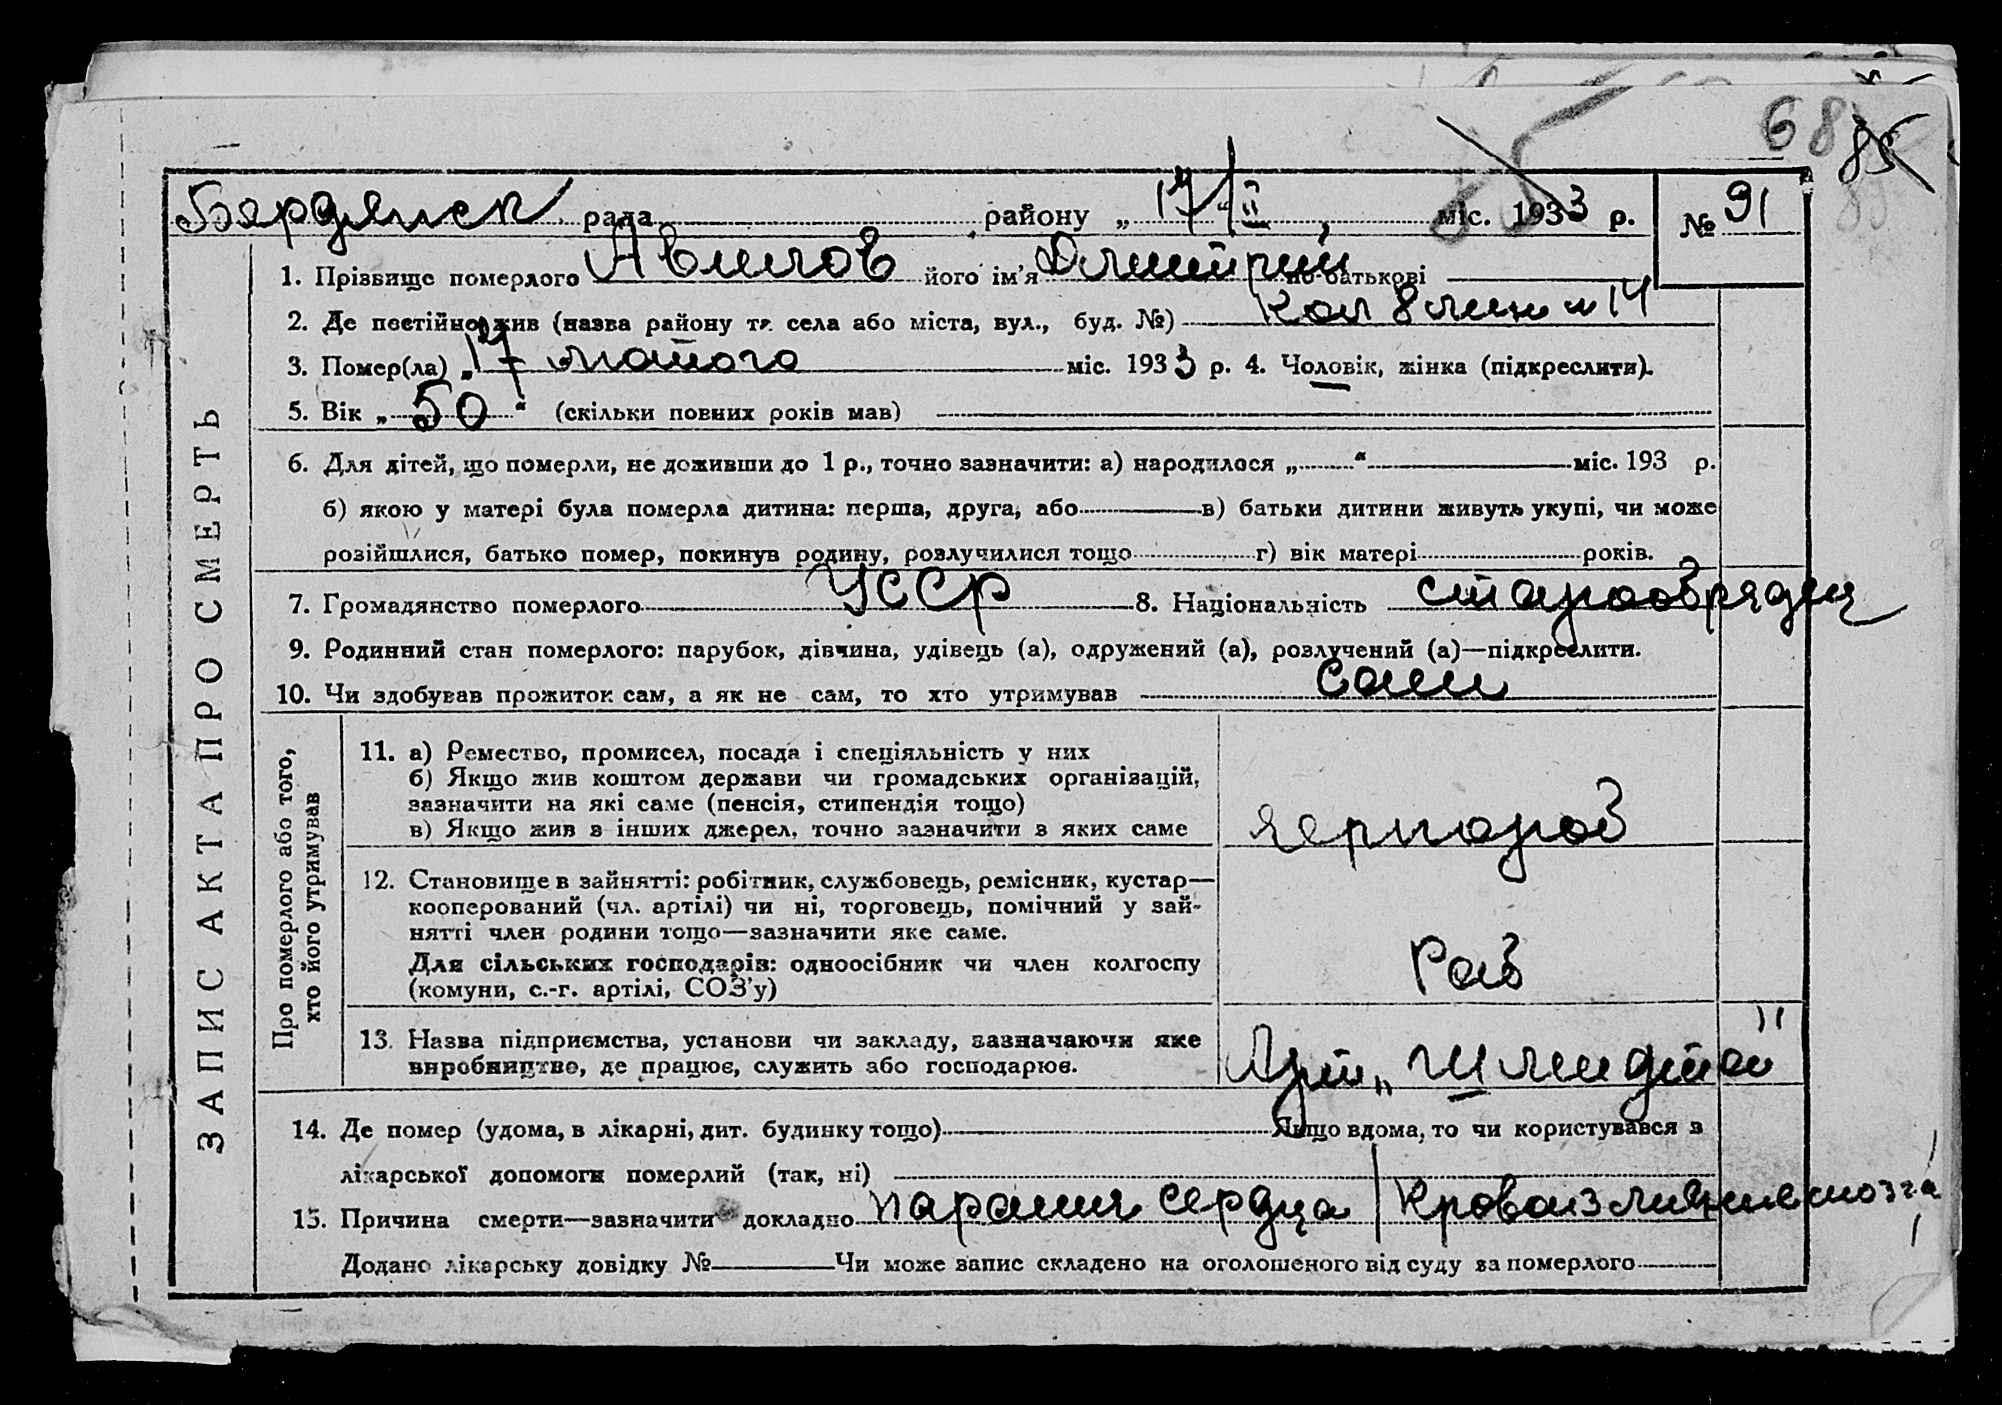 68 85
Бярдянск рада району „ 17/II " міс. 1933 р. № 91
1. Прізвище померлого Авилов його ім'я Дмитрий по-батькові
2. Де постійно жив (назва району та села або міста, вул., буд. №) Кол 8 лин № 14
3. Помер(ла) „ 17 лютого міс. 1933 р. 4. Чоловік, жінка (підкреслити).
5. Вік „ 50 " (скільки повних років мав)
6. Для дітей, що померли, не доживши до 1 р., точно зазначити: а) народилося „ " міс. 193 р.
б) якою у матері була померла дитина: перша, друга, або в) батьки дитини живуть укупі, чи може
розійшлися, батько помер, покинув родину, розлучилися тощо г) вік матері років.
7. Громадянство померлого УССР 8. Національність старообрядец
9. Родинний стан померлого: парубок, дівчина, удівець (а), одружений (а), розлучений (а)—підкреслити.
10. Чи здобував прожиток сам, а як не сам, то хто утримував сам
ЗАПИС АКТА ПРО СМЕРТЬ
Про померлого або того,
хто його утримував
11. а) Ремество, промисел, посада і спеціяльність у них
б) Якщо жив коштом держави чи громадських організацій,
зазначити на які саме (пенсія, стипендія тощо)
в) Якщо жив з інших джерел, точно зазначити з яких саме
чернороб
12. Становище в зайнятті: робітник, службовець, ремісник, кустар—
кооперований (чл. артілі) чи ні, торговець, помічний у зай-
нятті член родини тощо—зазначити яке саме.
Для сільських господарів: одноосібник чи член колгоспу
(комуни, с.-г. артілі, СОЗ'у)
Раб
13. Назва підприємства, установи чи закладу, зазначаючи яке
виробництво, де працює, служить або господарює.
Арт „
14. Де помер (удома, в лікарні, дит. будинку тощо) Якщо вдома, то чи користувався з
лікарської допомоги померлий (так, ні)
15. Причина смерти—зазначити докладно паралич сердца / Кровоизлияние мозга
Додано лікарську довідку № Чи може запис складено на оголошеного від суду за померлого